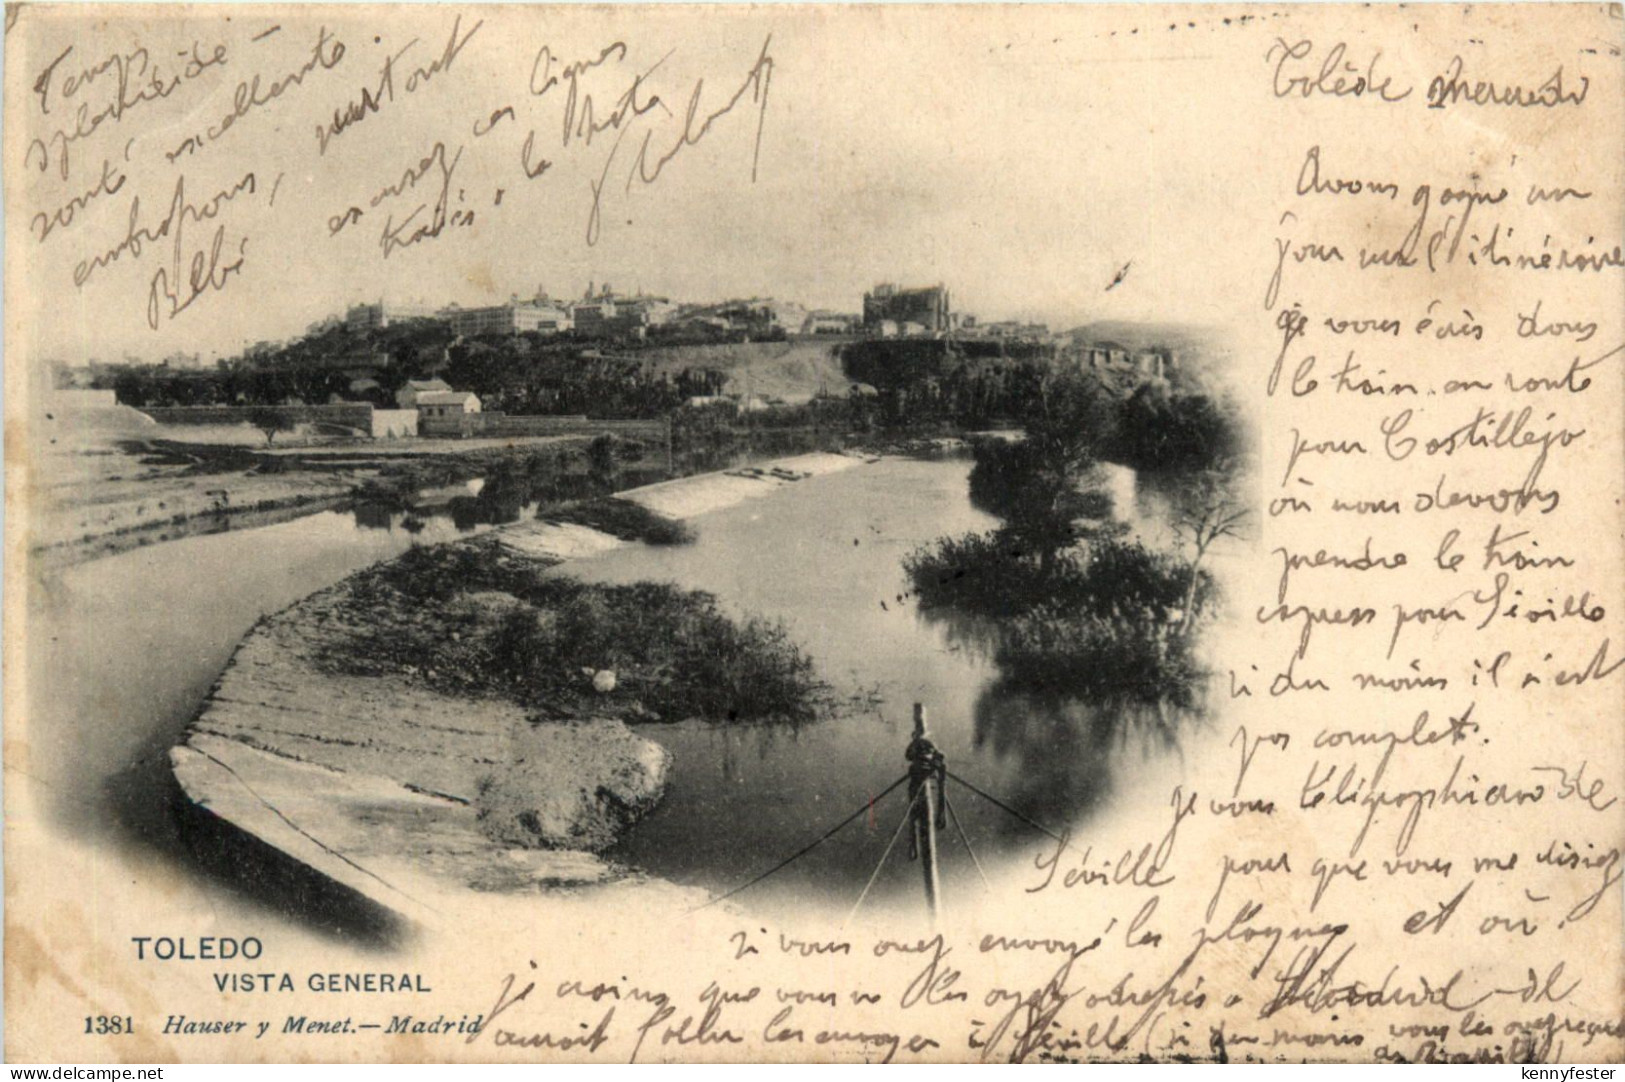 Tolède Mercredi
Avons gagné un
jour sur l'itinéraire
Je vous écris dans
le train en route
pour Castillejo
où nous devons
prendre le train
express pour Séville
si du moins il n'est
pas complet.
Je vous télégraphierai de
Séville pour que vous me disiez
si vous avez envoyé les plaques et où.
je crains que vous ne les ayez adressés à Madrid - il
aurait fallu les envoyer à Séville (si du moins vous les avez reçues
de
Temps
splendide -
santé excellente.
embrassons, surtout
Bébé
excusez ces lignes
tracées à la hâte
TOLEDO
VISTA GENERAL
1381 Hauser y Menet.—Madrid
kennyfester